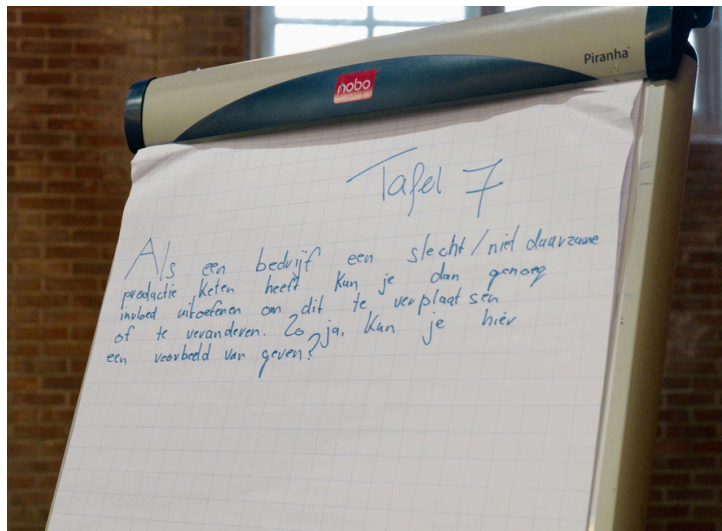 Piranha
nobo
Tafel 7
Als een bedrijf een slecht/niet duurzame
productie keten heeft kan je dan genoeg
invloed uitoefenen om dit te verplaatsen
of te veranderen. Zo ja, kun je hier
een voorbeeld van geven?